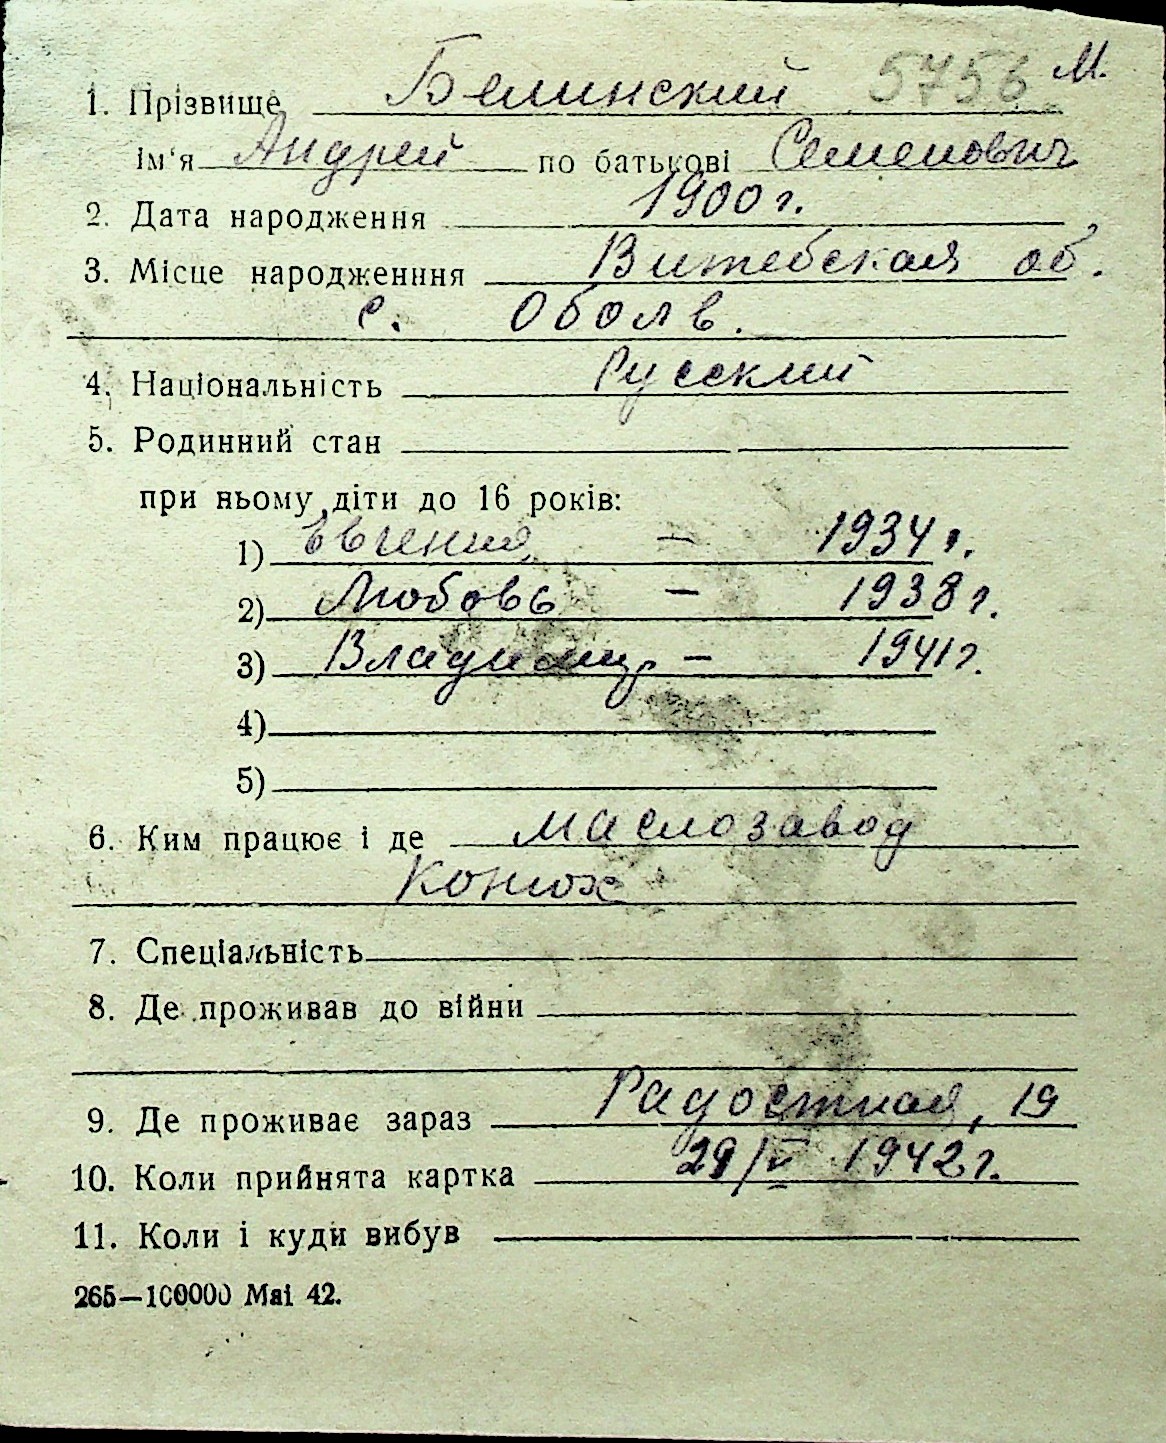 5756 М.
1. Прізвище Белинский
ім'я Андрей по батькові Семенович
2. Дата народження 1900 г.
3. Місце народженння Витебская об.
с. Оболв.
4. Національність Русский
5. Родинний стан
при ньому діти до 16 років:
1) Евгения – 1934 г.
2) Любовь – 1938 г.
3) Владимир – 1941 г.
4)
5)
6. Ким працює і де маслозавод
Конюх
7. Спеціальність
8. Де проживав до війни
9. Де проживає зараз Радостная, 19
10. Коли прийнята картка 29/V 1942 г.
11. Коли і куди вибув
265—100000 Mai 42.